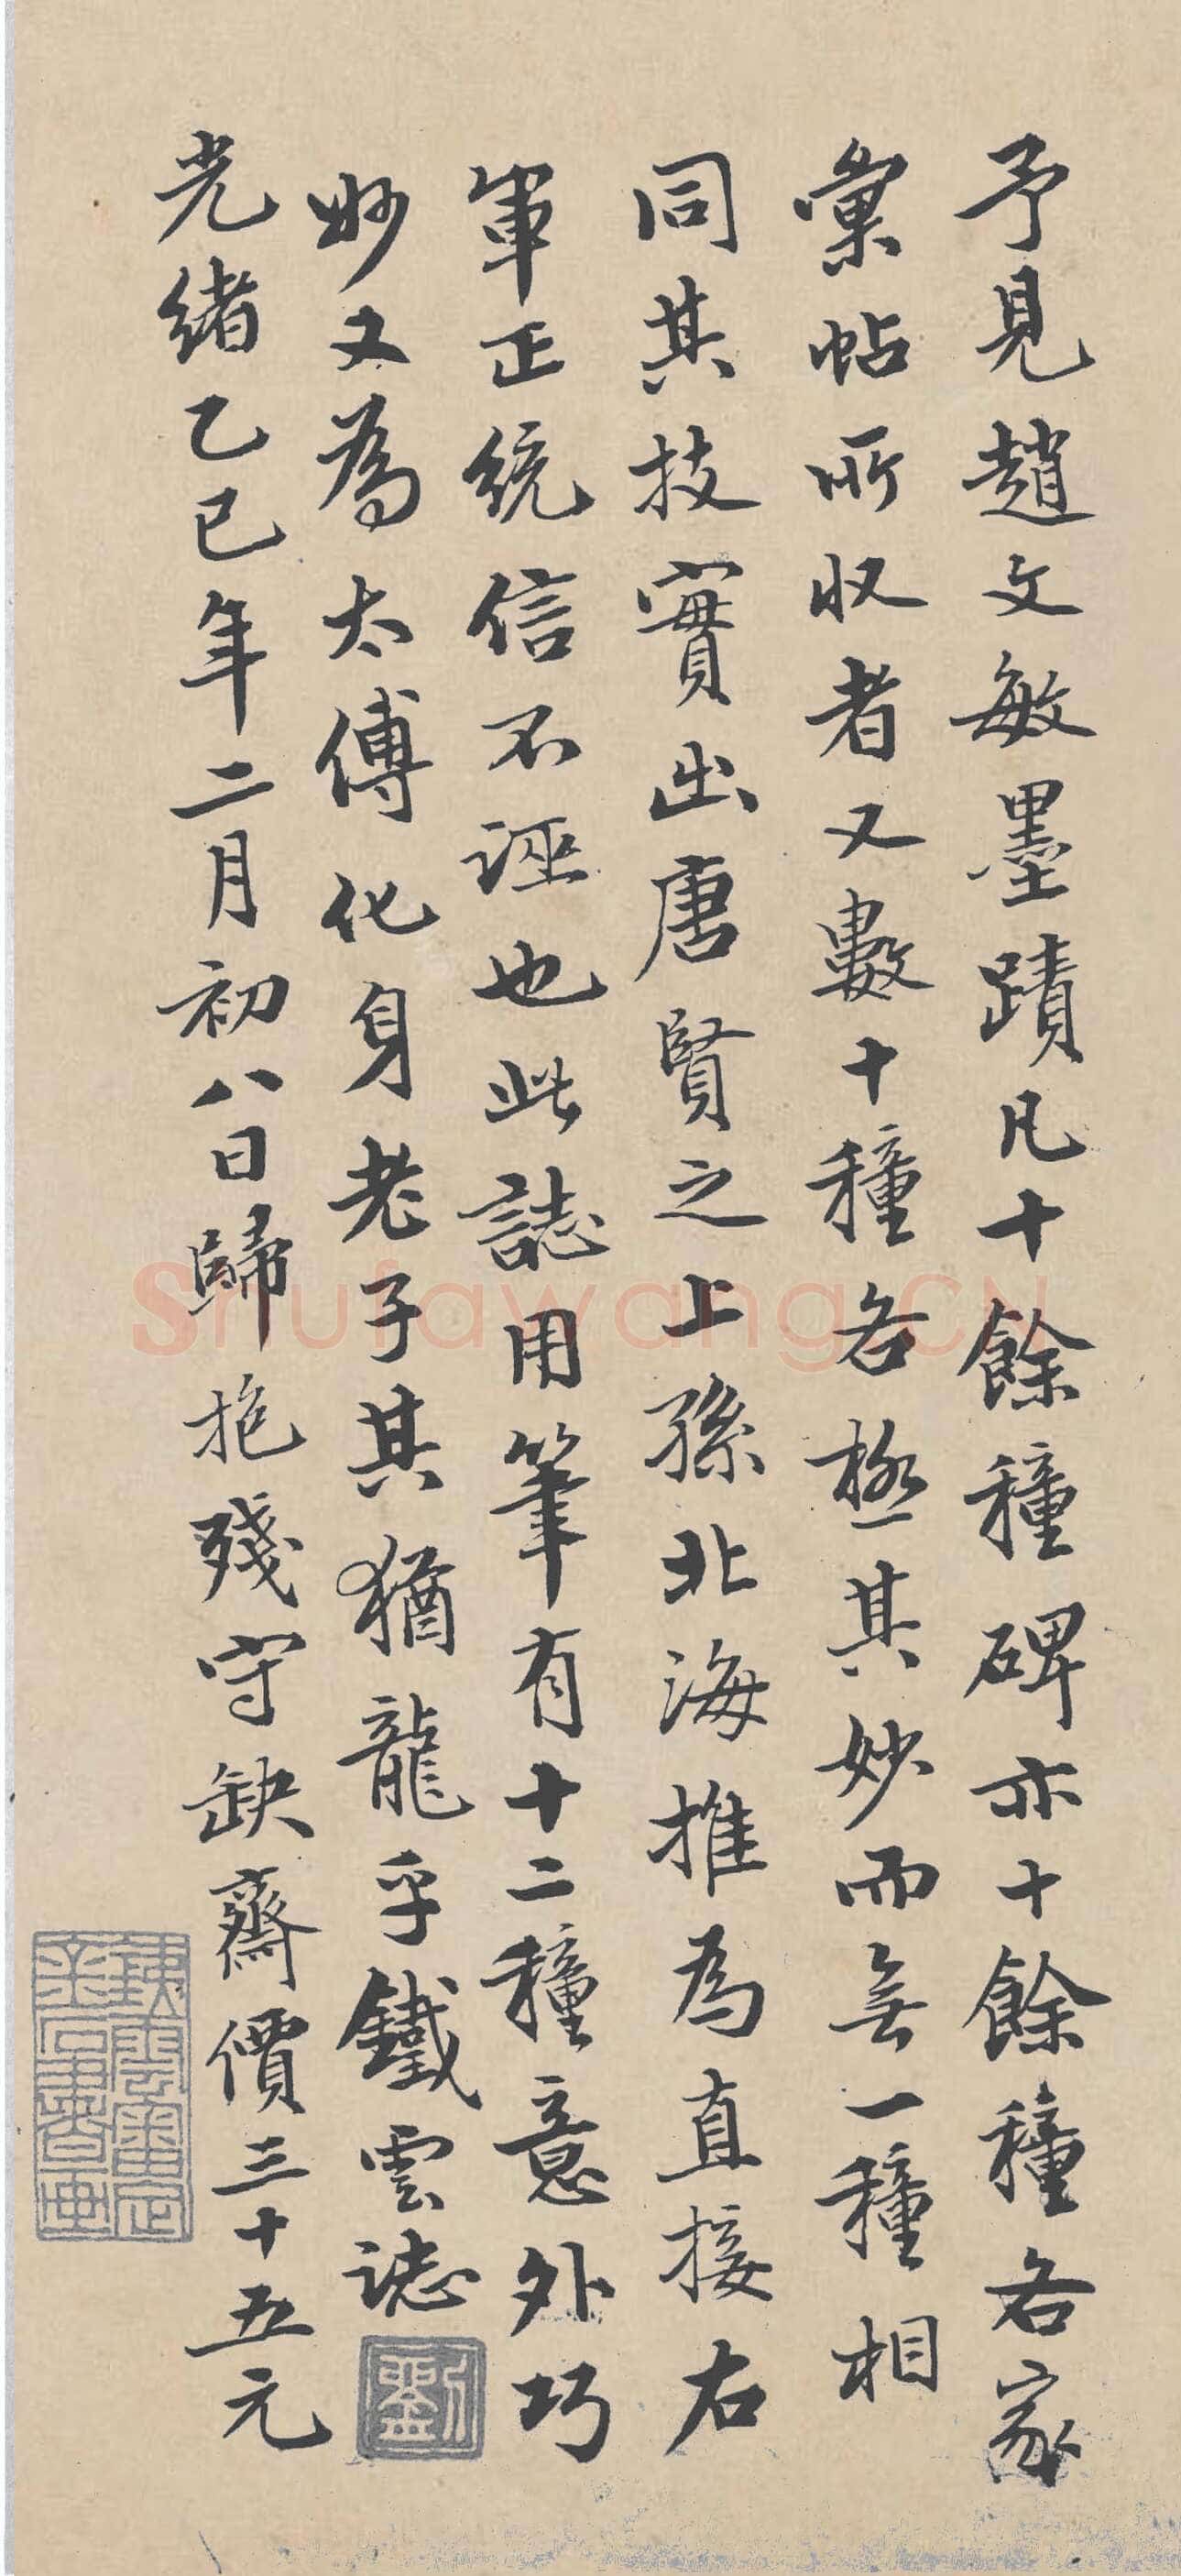 予見趙文敏墨蹟凡十餘種碑亦十餘種各家
彙帖所收者又數十種各極其妙而無一種相
同其技實出唐賢之上孫北海推為直接右
軍正統信不誣也此誌用筆有十二種意外巧
妙又為太傅化身老子其猶龍乎鐵雲誌
劉
光緒乙巳年二月初八日歸抱殘守缺齋價三十五元
shufawang.CN